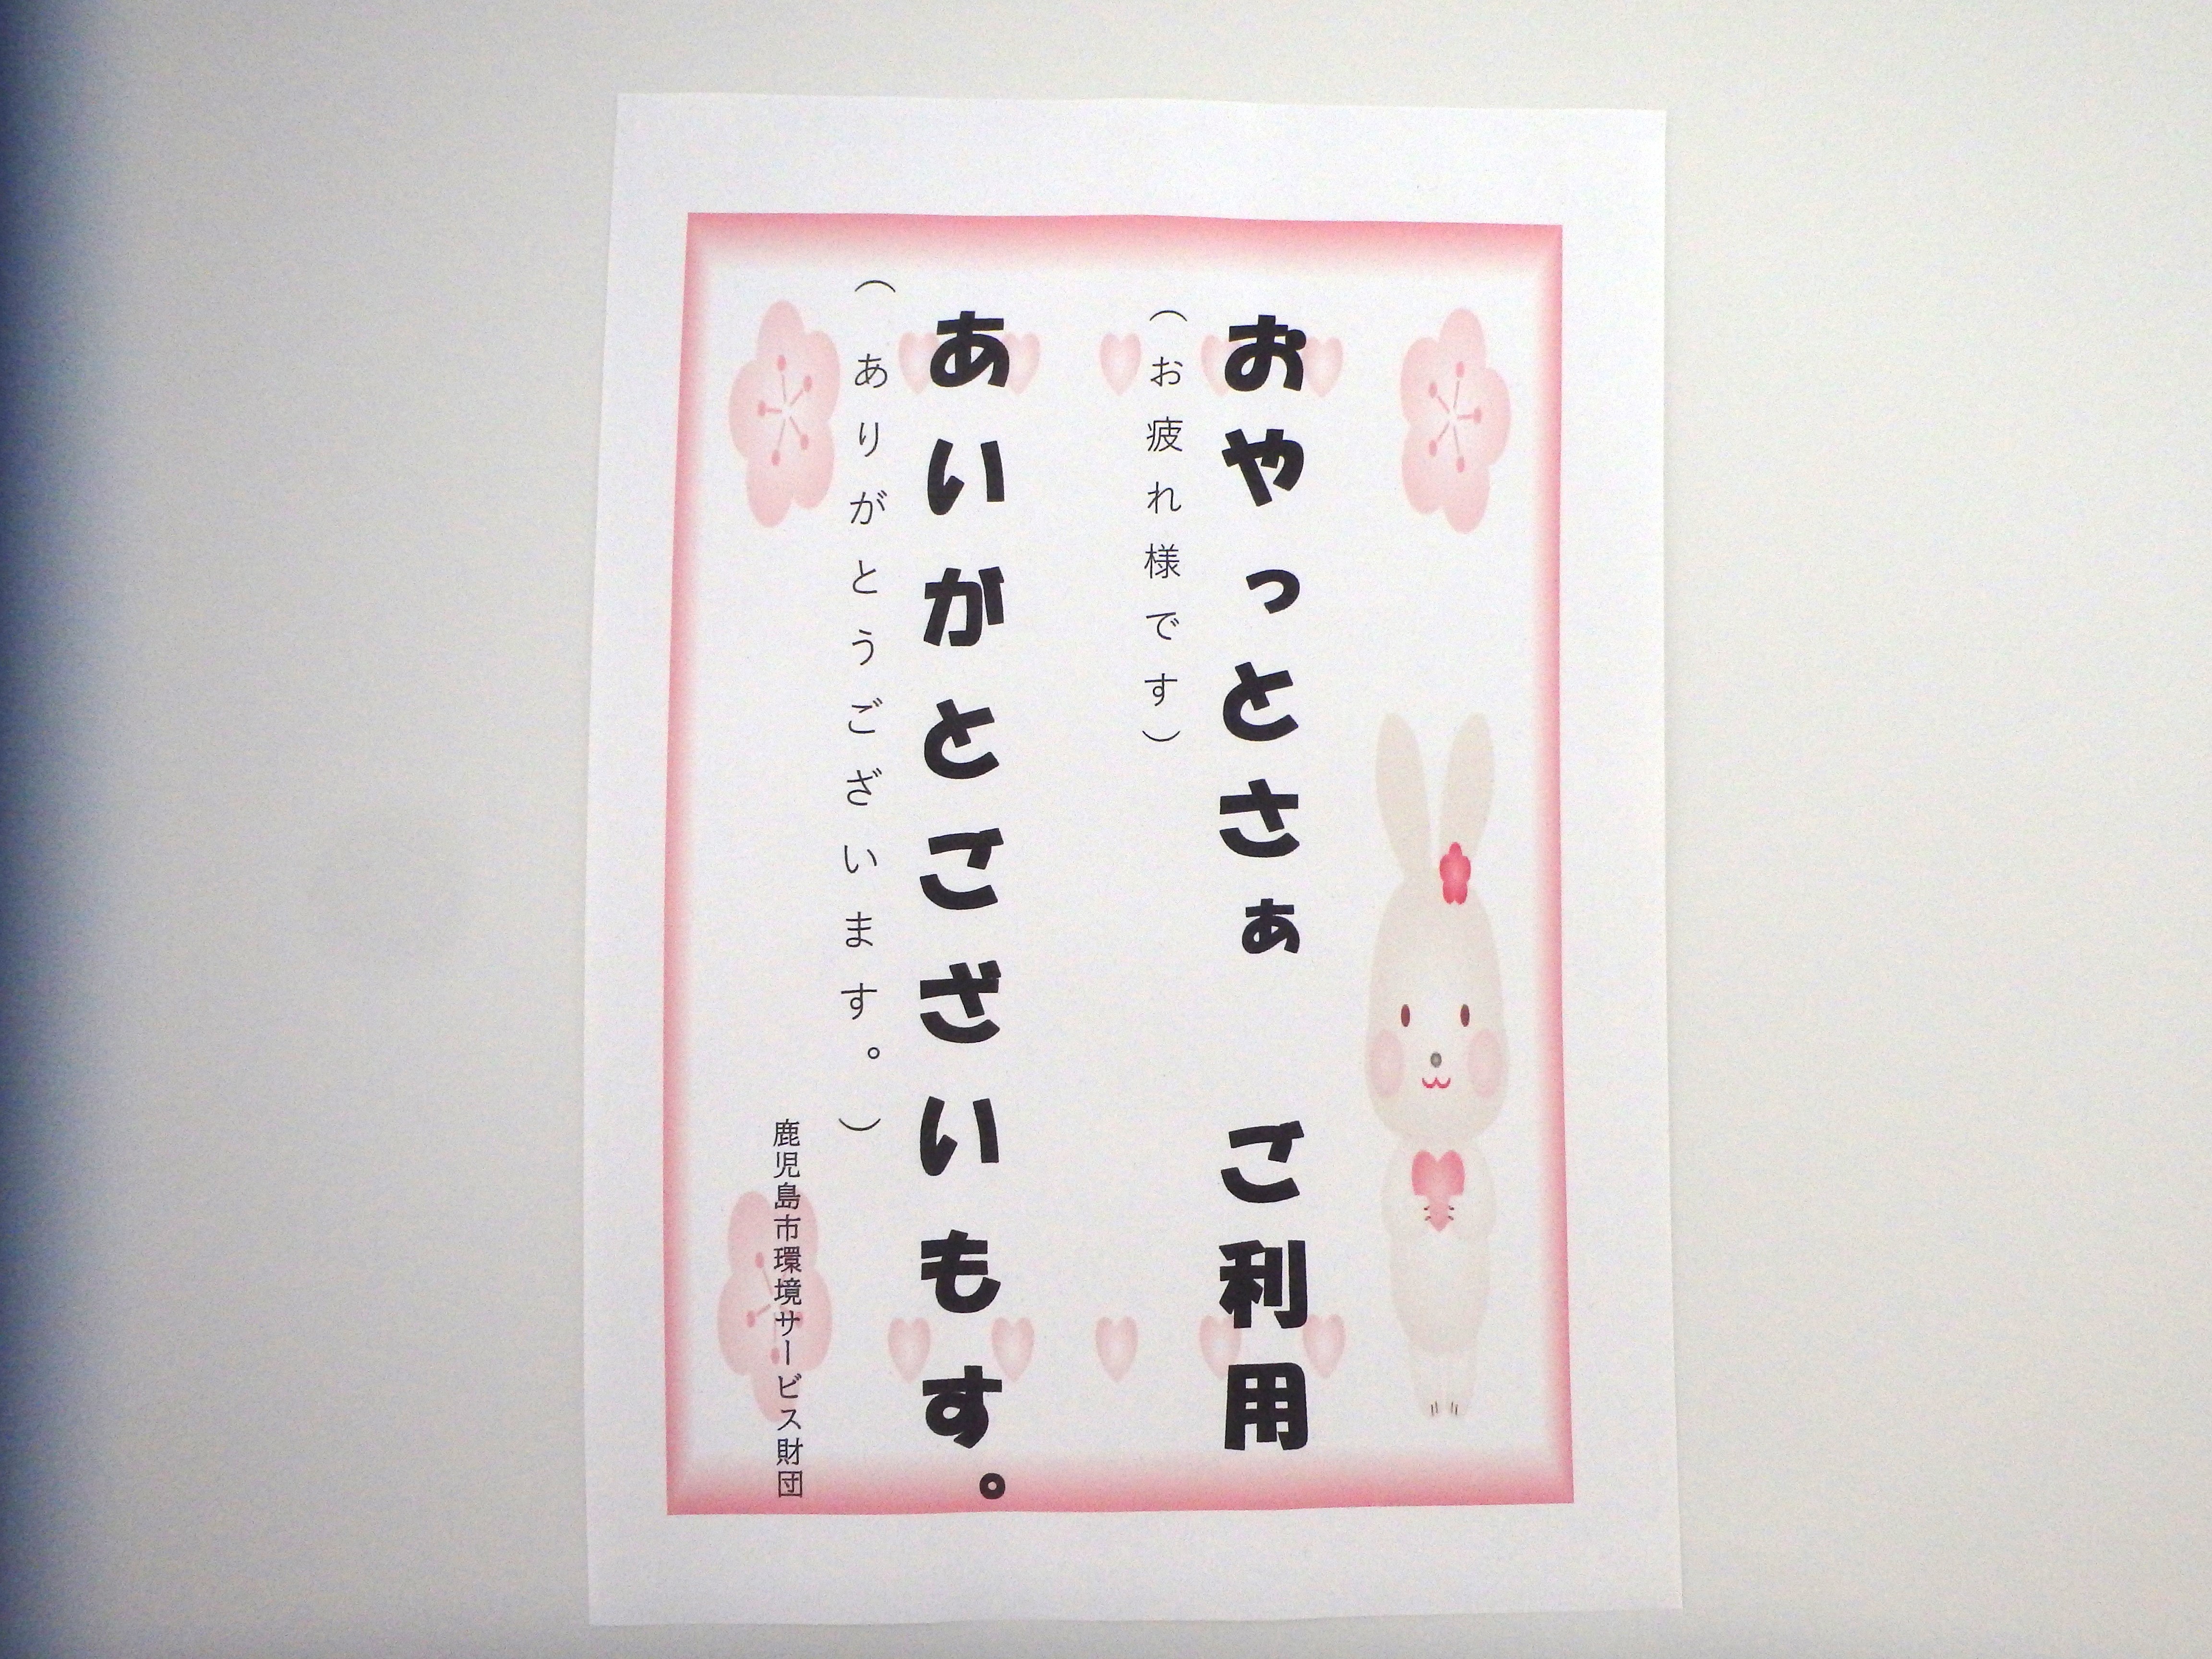 おやっとさぁ　ご利用
（お疲れ様です）
あいがとございもす。
（ありがとうございます。）
鹿児島市環境サービス財団